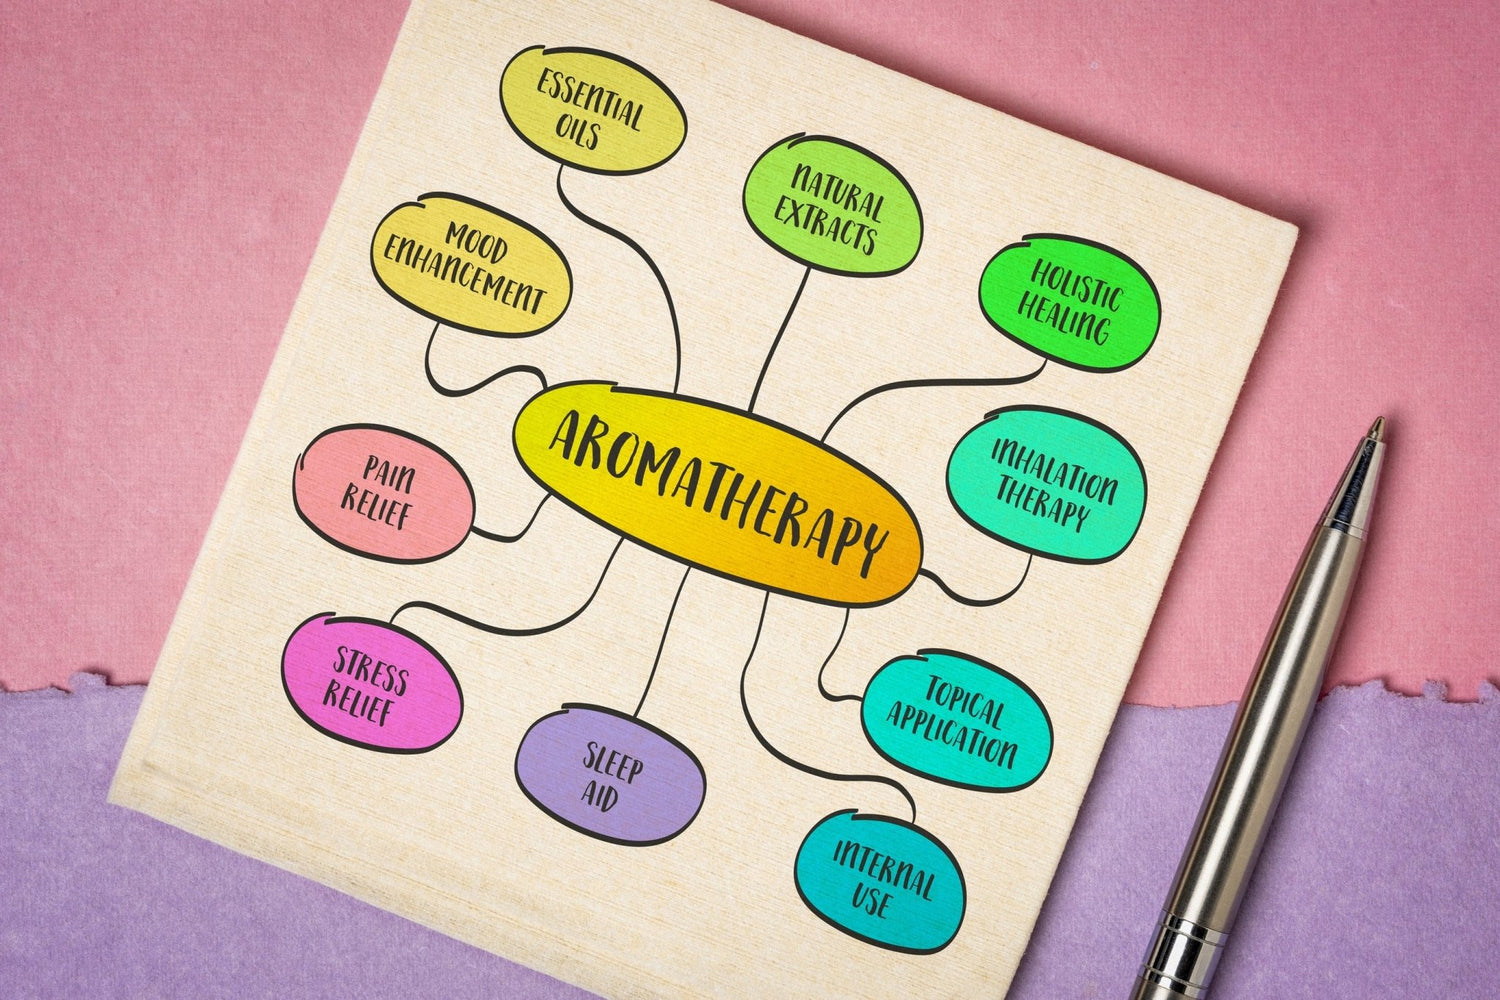 ESSENTIAL
OILS
NATURAL
EXTRACTS
HOLISTIC
HEALING
MOOD
ENHANCEMENT
INHALATION
THERAPY
AROMATHERAPY
PAIN
RELIEF
TOPICAL
APPLICATION
STRESS
RELIEF
SLEEP
AID
INTERNAL
USE